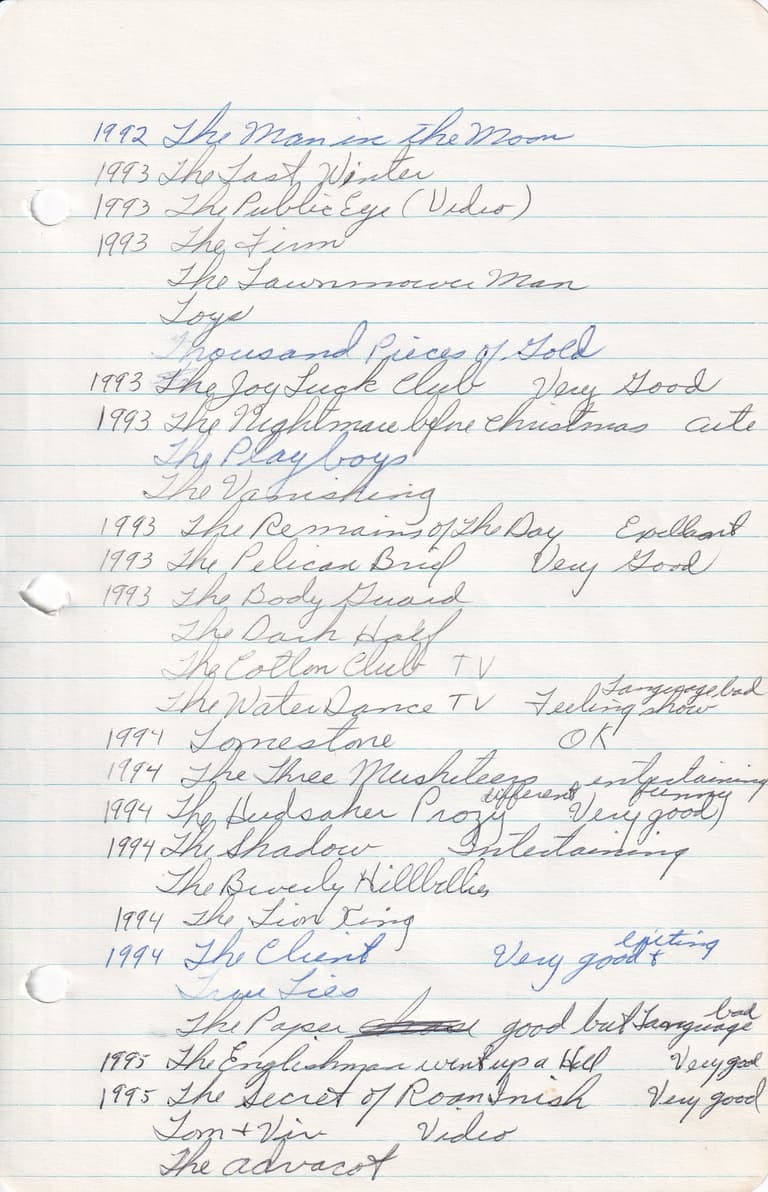 1992 The Man in the Moon
1993 The Last Winter
1993 The Public Eye (Video)
1993 The Firm
The Lawnmower Man
Toys
Thousand Pieces of Gold
1993 The Joy Luck Club Very Good
1993 The Nightmare before Christmas cute
The Playboys
The Vanishing
1993 The Remains of The Day Excellant
1993 The Pelican Brief Very Good
1993 The Body Guard
The Dark Half
The Cotton Club TV
The Water Dance TV Feeling show Language bad
1994 Tomestone OK
1994 The Three Musketeers entertaining
1994 The Hudsaker Proxy different Very good funny
1994 The Shadow Entertaining
The Beverly Hillbillies
1994 The Lion King
1994 The Client Very good + exiting
True Lies
The Paper good but Language bad
1995 The Englishman went up a Hill Very good
1995 The Secret of Roan Inish Very good
Tom + Viv Video
The advacot